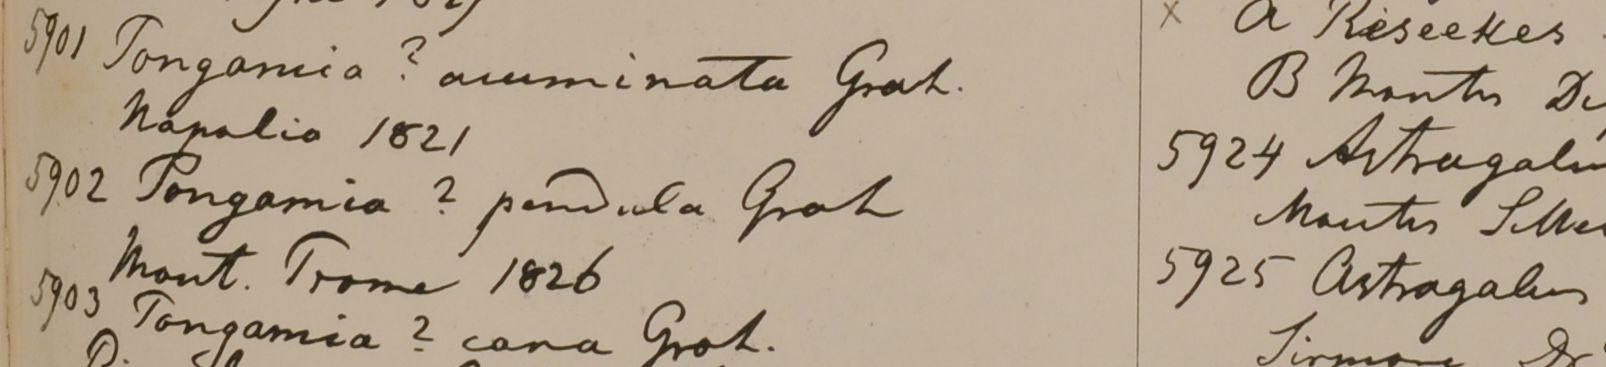 5901 Pongamia ? acuminata Grah.
Napalia 1821
5902 Pongamia ? pendula Grah
Mont. Prome 1826
5903 Pongamia ? cana Grah.
x a Riseekes
B Montes
5924 Astragalus
Montes
5925 Astragalus
Sirmore Dr